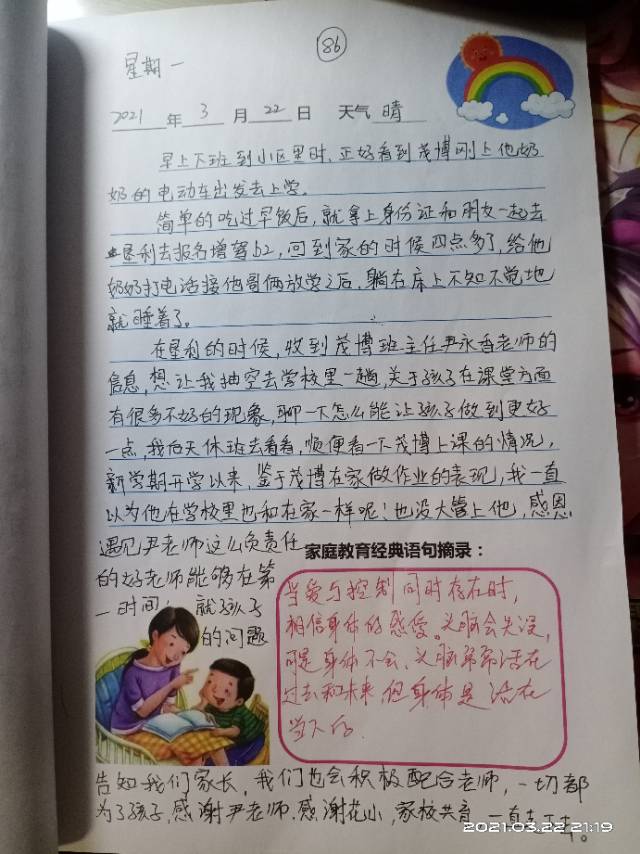 86
星期一
2021年3月22日 天气晴
早上下班到小区里时,正好看到茂博刚上他奶
奶的电动车出发去上学.
简单的吃过早饭后,就拿上身份证和朋友一起去
垦利去报名增驾b2,回到家的时候四点多了,给他
奶奶打电话接他哥俩放学之后,躺在床上不知不觉地
就睡着了。
在垦利的时候,收到茂博班主任尹永香老师的
信息,想让我抽空去学校里一趟,关于孩子在课堂方面
有很多不好的现象,聊一下怎么能让孩子做到更好
一点,我后天休班去看看,顺便看一下茂博上课的情况,
新学期开学以来,鉴于茂博在家做作业的表现,我一直
以为他在学校里也和在家一样呢!也没大管上他,感恩
遇见尹老师这么负责任
的好老师能够在第
一时间,就孩子
的问题
家庭教育经典语句摘录:
当爱与控制同时存在时,
相信身体的感受。头脑会失误,
可是身体不会、头脑常常活在
过去和未来,但身体是活在
当下的.
告知我们家长,我们也会积极配合老师,一切都
为了孩子,感谢尹老师.感谢花小,家校共育一直走下去。
2021.03.22 21:19